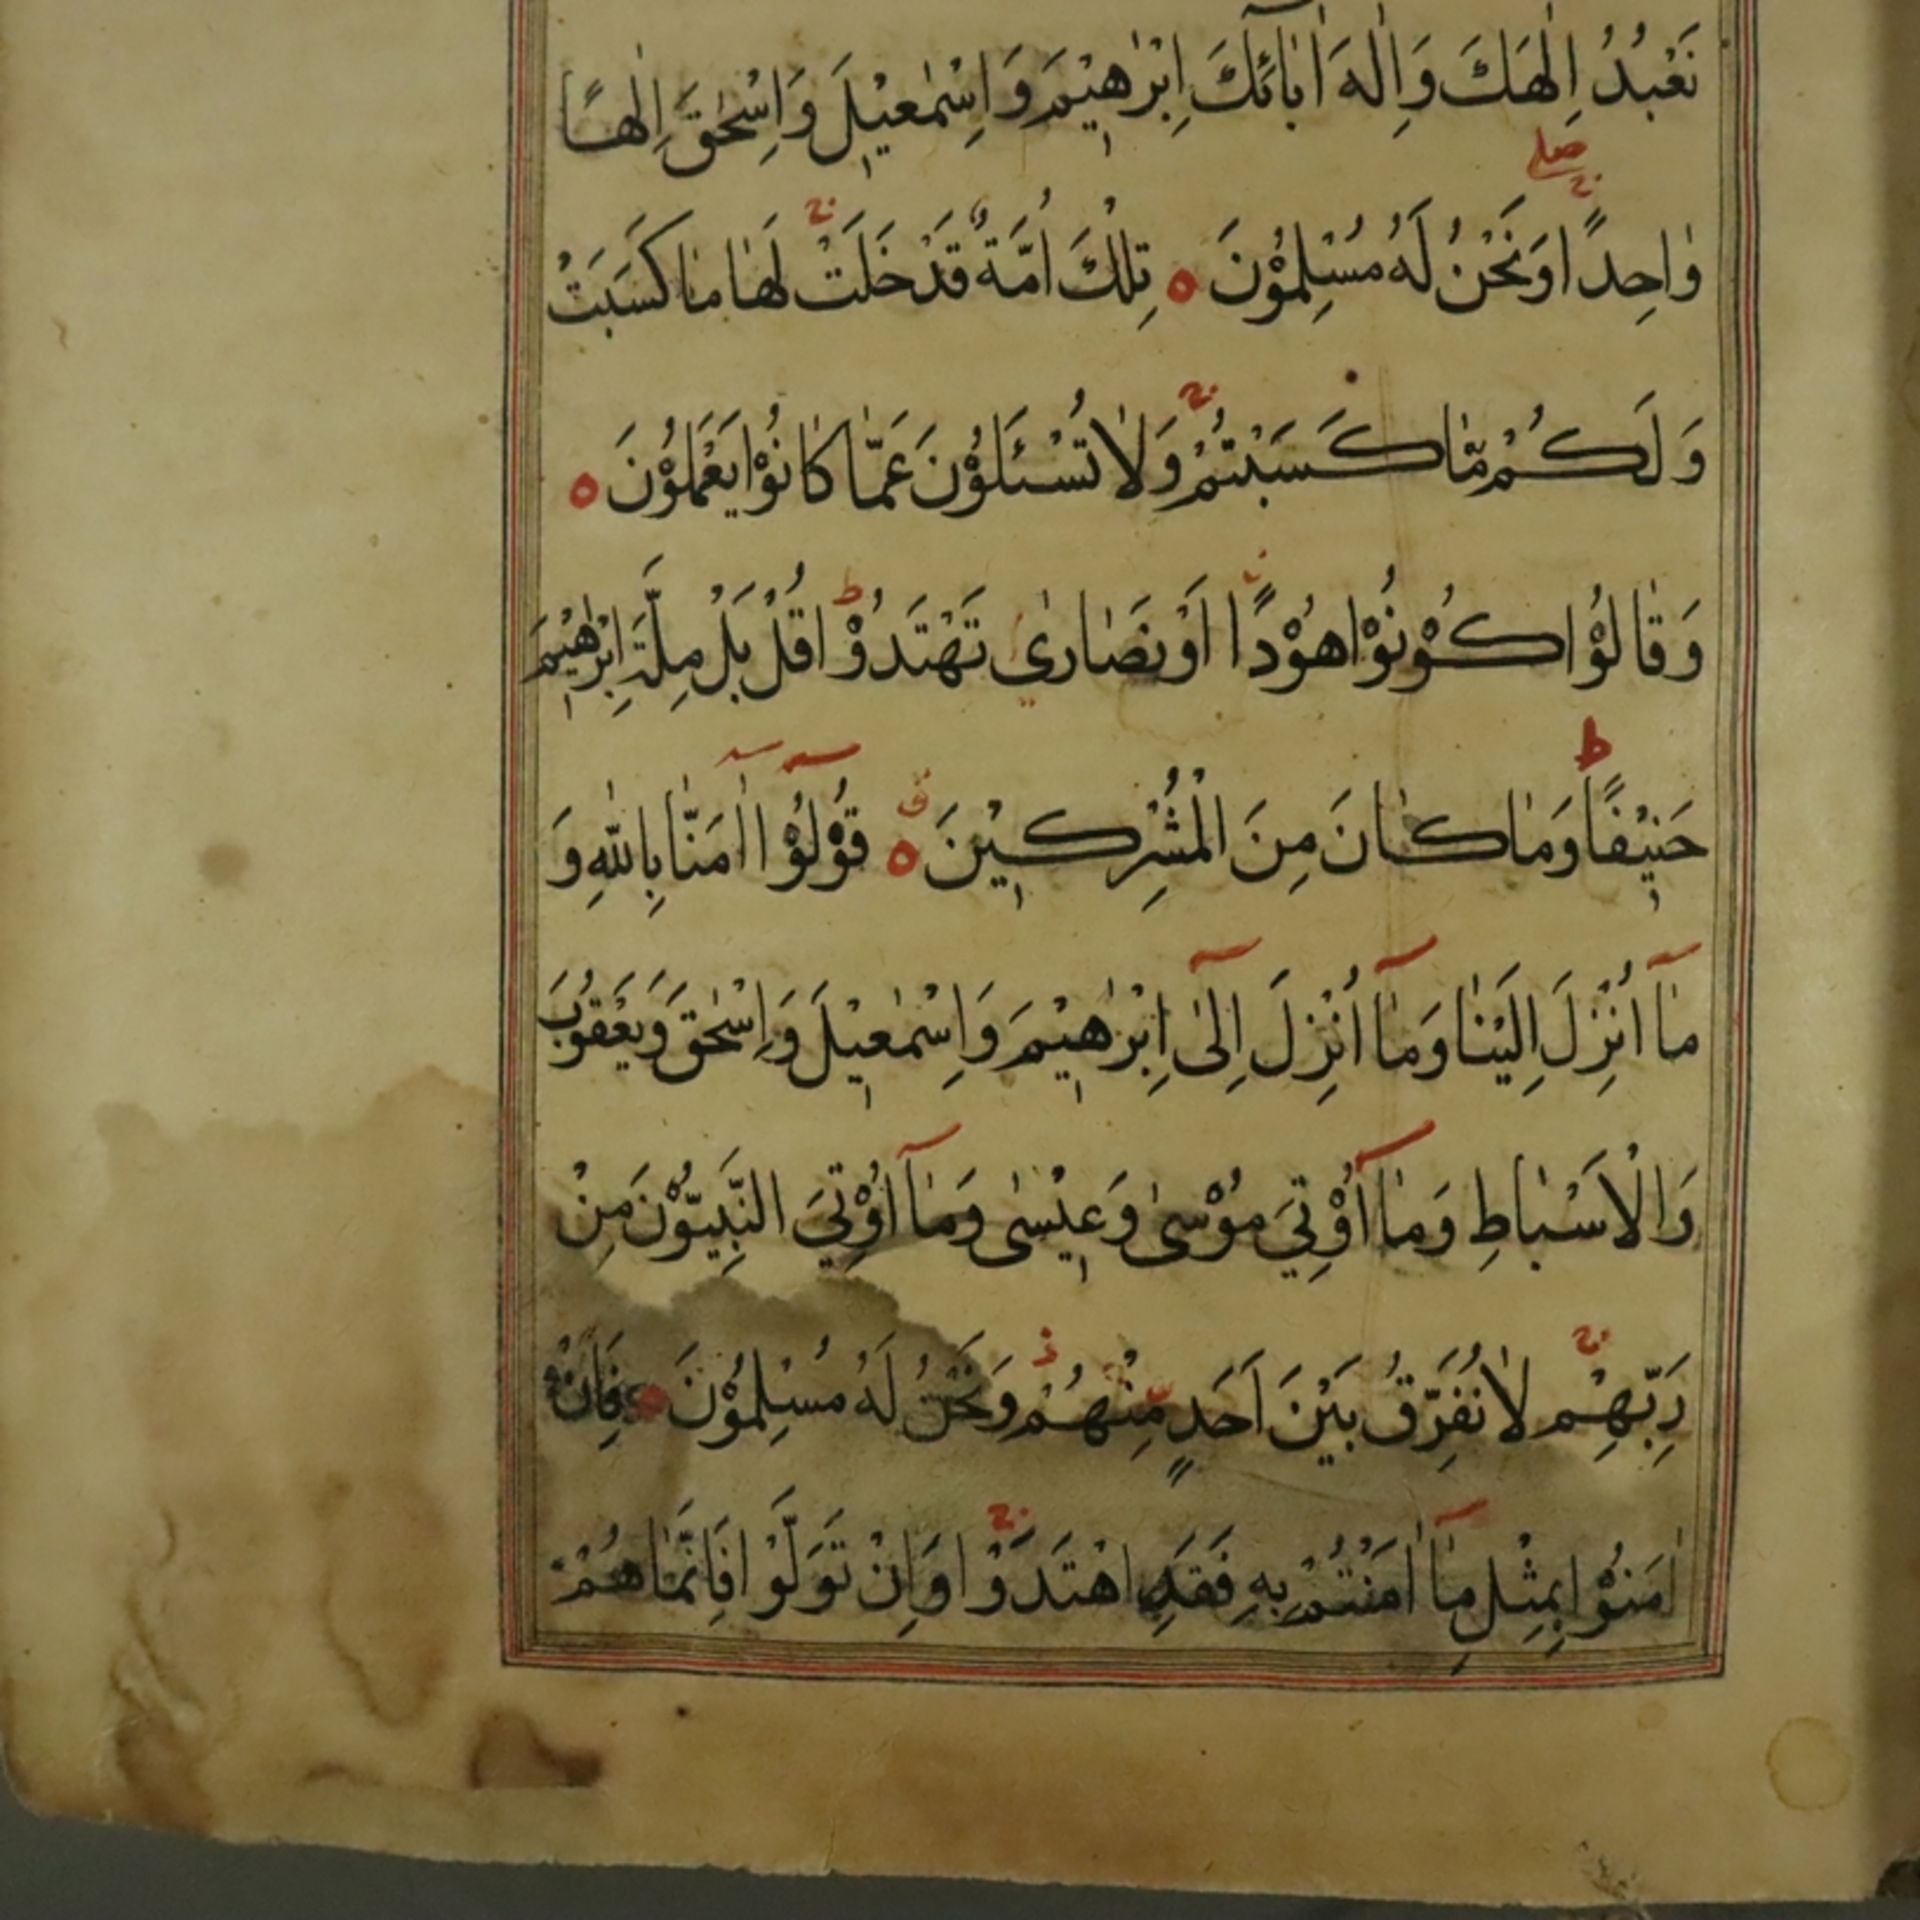 نَعْبُدُ اِلٰهَكَ وَاِلٰهَ اٰبَآئِكَ اِبْرٰهٖيْمَ وَاِسْمٰعٖيْلَ وَاِسْحٰقَ اِلٰهًا
وٰاحِدًا وَنَحْنُ لَهُ مُسْلِمُوْنَ ه تِلْكَ اُمَّةٌ قَدْ خَلَتْ لَهٰا مٰا كَسَبَتْ
وَلَكُمْ مّٰا كَسَبْتُمْ وَلٰا تُسْئَلُوْنَ عَمّٰا كٰانُوْا يَعْمَلُوْنَ ه
وَقٰالُوْا كُوْنُوْا هُوْدًا اَوْ نَصٰارٰي تَهْتَدُوْا قُلْ بَلْ مِلَّةَ اِبْرٰهٖيْمَ
حَنٖيْفًا وَمٰا كٰانَ مِنَ الْمُشْرِكٖيْنَ ه قُوْلُوْٓا اٰمَنّٰا بِاللّٰهِ وَ
مٰآ اُنْزِلَ اِلَيْنٰا وَمٰآ اُنْزِلَ اِلٰٓى اِبْرٰهٖيْمَ وَاِسْمٰعٖيْلَ وَاِسْحٰقَ وَيَعْقُوْبَ
وَالْاَسْبٰاطِ وَمٰآ اُوْتِيَ مُوْسٰى وَعٖيْسٰى وَمٰآ اُوْتِيَ النَّبِيّوُْنَ مِنْ
رَبِّهِمْ لٰا نُفَرِّقُ بَيْنَ اَحَدٍ مِّنْهُمْ وَنَحْنُ لَهُ مُسْلِمُوْنَ ه فَاِنْ
اٰمَنُوْا بِمِثْلِ مٰآ اٰمَنْتُمْ بِهِ فَقَدِ اهْتَدَوْا وَاِنْ تَوَلَّوْا فَاِنَّمٰا هُمْ